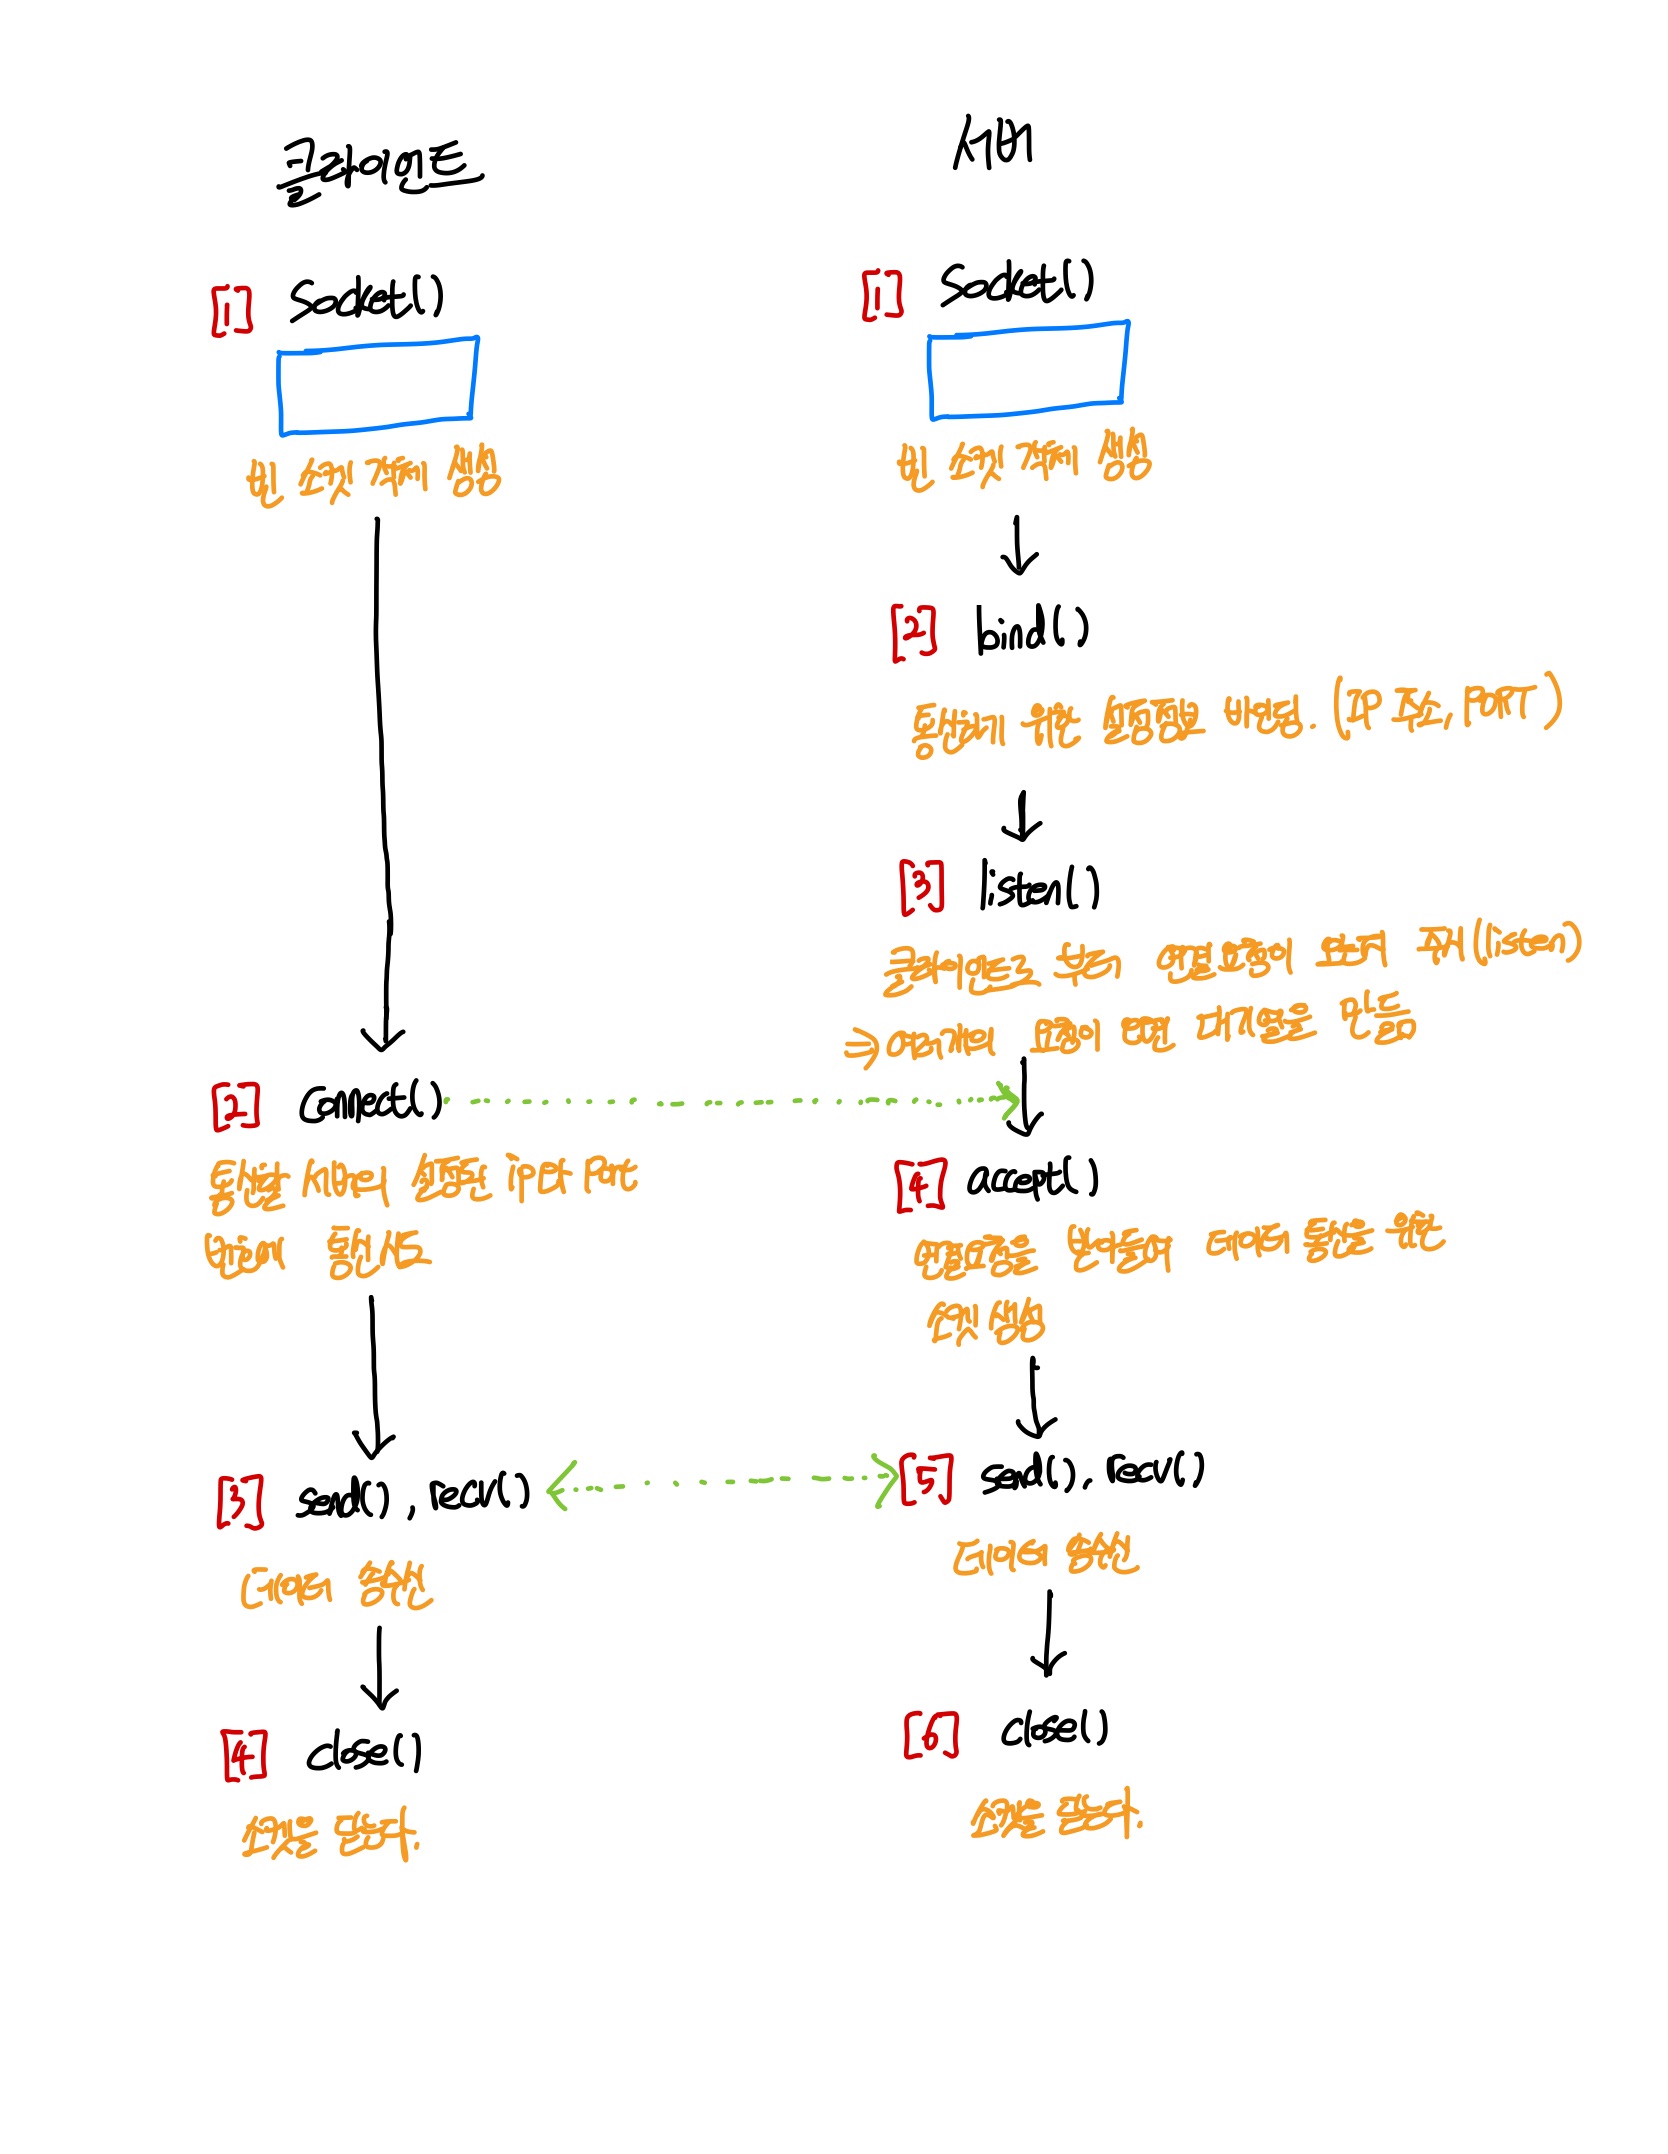 클라이언트
[1] Socket()
빈 소켓 객체 생성
[2] connect()
통신할 서버의 설정된 ip와 port
번호에 통신시도
[3] send(), recv()
데이터 송수신
[4] close()
소켓을 닫는다.
서버
[1] Socket()
빈 소켓 객체 생성
[2] bind()
통신하기 위한 설정정보 바인딩. (IP 주소, PORT)
[3] listen()
클라이언트로 부터 연결요청이 오는지 주시(listen)
⇒ 여러개의 요청이 오면 대기열을 만듦
[4] accept()
연결요청을 받아들여 데이터 통신을 위한
소켓 생성
[5] send(), recv()
데이터 송수신
[6] close()
소켓을 닫는다.